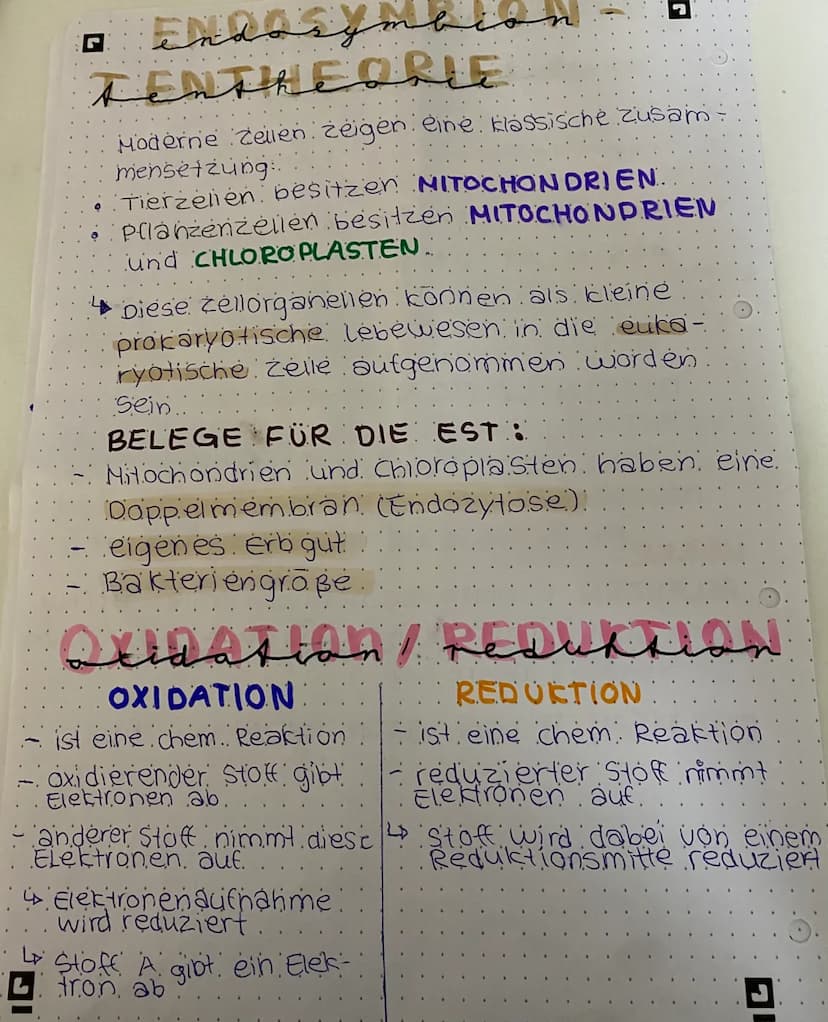 ENDOSYMBION-
endosymbion
TENTHEORIE
tentheorie
Moderne Zellen zeigen eine klassische Zusam-
mensetzung:
• Tierzellen besitzen MITOCHONDRIEN.
• Pflanzenzellen besitzen MITOCHONDRIEN
und CHLOROPLASTEN.
↳ Diese Zellorganellen können als kleine
prokaryotische Lebewesen in die euka-
ryotische Zelle aufgenommen worden
sein.
BELEGE FÜR DIE EST:
- Mitochondrien und Chloroplasten haben eine
Doppelmembran (Endozytose)
- eigenes Erbgut
- Bakteriengröße
OXIDATION / REDUKTION
oxidation / reduktion
OXIDATION
- ist eine chem. Reaktion
- oxidierender Stoff gibt
Elektronen ab
- anderer Stoff nimmt diese
Elektronen auf
↳ Elektronenaufnahme
wird reduziert
↳ Stoff A gibt ein Elek-
tron ab
REDUKTION
- ist eine chem. Reaktion
- reduzierter Stoff nimmt
Elektronen auf
↳ Stoff wird dabei von einem
Reduktionsmitte reduziert